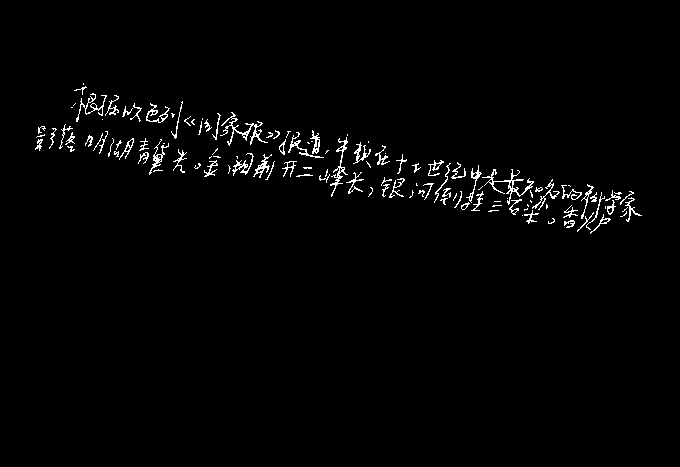 根据以色列《国家报》报道,牛顿在十七世纪中是最知名的科学家
影落明湖青黛光。金阙前开二峰长,银河倒挂三石梁。香炉